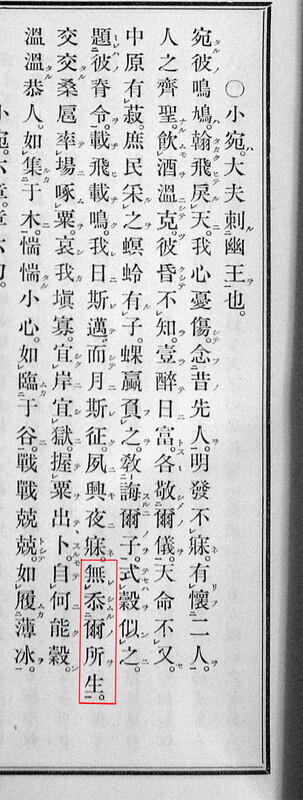 〇小宛。大夫刺幽王也。
宛彼鳴鳩。翰飛戾天。我心憂傷。念昔先人。明發不寐。有懷二人。
人之齊聖。飲酒溫克。彼昏不知。壹醉日富。各敬爾儀。天命不又。
中原有菽。庶民采之。螟蛉有子。蜾蠃負之。敎誨爾子。式穀似之。
題彼脊令。載飛載鳴。我日斯邁。而月斯征。夙興夜寐。無忝爾所生。
交交桑扈。率場啄粟。哀我塡寡。宜岸宜獄。握粟出卜。自何能穀。
溫溫恭人。如集于木。惴惴小心。如臨于谷。戰戰兢兢。如履薄冰。